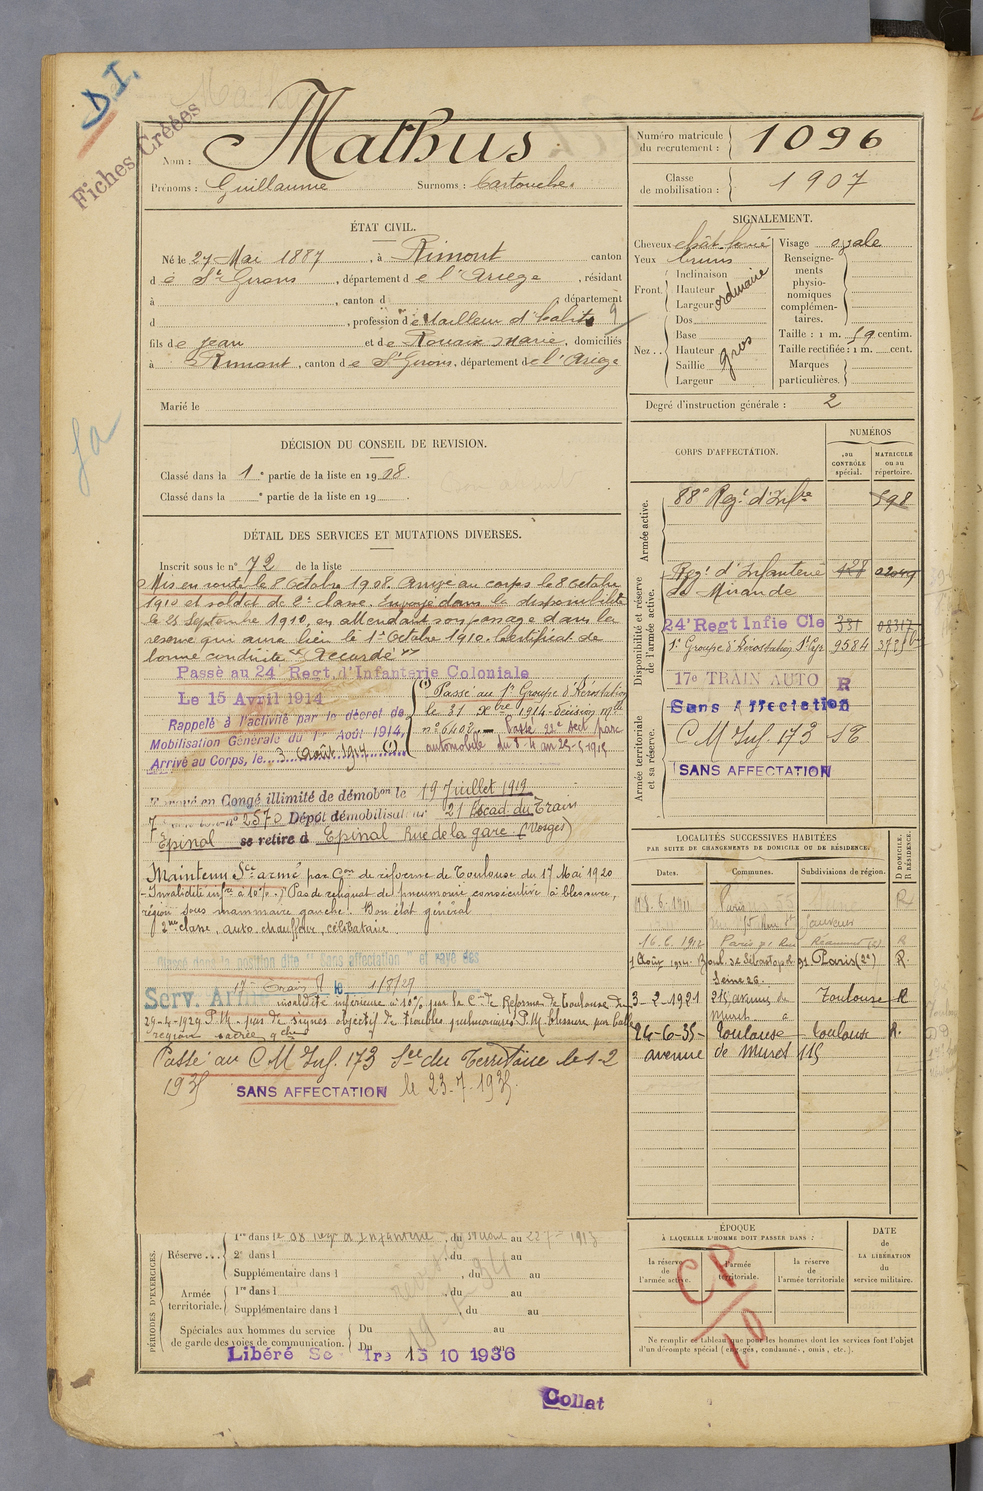 D.I.
Fiches Créées
Nom : Mathus
Prénoms : Guillaume Surnoms : Cartouche
Numéro matricule du recrutement : 1096
Classe de mobilisation : 1907
ÉTAT CIVIL.
Né le 27 Mai 1887, à Rimont canton
de St Girons, département de l'Ariège, résidant
à , canton d département
d , profession de tailleur d'habits 9
fils de Jean et de Rouaix Marie, domiciliés
à Rimont, canton de St Girons, département de l'Ariège
Marié le
SIGNALEMENT.
Cheveux chât. foncé
Yeux bruns
Front. Inclinaison
Hauteur
Largeur
ordinaire
Nez.. Dos
Base
Hauteur
Saillie
Largeur
gros
Visage ovale
Renseigne-
ments
physio-
nomiques
complémen-
taires.
Taille : 1 m. 59 centim.
Taille rectifiée : 1 m. cent.
Marques
particulières.
Degré d'instruction générale : 2
DÉCISION DU CONSEIL DE REVISION.
Classé dans la 1e partie de la liste en 1908.
Classé dans la e partie de la liste en 19
DÉTAIL DES SERVICES ET MUTATIONS DIVERSES.
Inscrit sous le n° 72 de la liste
Mis en route le 8 Octobre 1908. Arrivé au corps le 8 Octobre
1910 et soldat de 2e classe. Envoyé dans la disponibilité
le 25 Septembre 1910, en attendant son passage dans la
réserve qui aura lieu le 1er Octobre 1910. Certificat de
bonne conduite "Accordé"
Passé au 24 Regt. d'Infanterie Coloniale
Le 15 Avril 1914
Rappelé à l'activité par le décret de
Mobilisation Générale du 1er Août 1914,
Arrivé au Corps, le 3 Août 1914 (1)
(1) Passé au 1er Groupe d'Aérostation
le 31 Xbre 1914 - Décision Mlle
n° 6402 - Passé 22e sect parc
automobile du 8-4 au 25-5-1915
Envoyé en Congé illimité de démobon le 19 Juillet 1919
n° 2570 Dépôt démobilisateur 21 Escad. du Train
Epinal se retire à Epinal Rue de la gare (Vosges)
Maintenu Sce armé par Con de réforme de Toulouse du 17 Mai 1920
- Invalidité infre à 10% - Pas de reliquat de pneumonie consécutive à blessure,
région sous mammaire gauche. Bon état général
2me classe, auto-chauffeur, célibataire
Classé dans la position dite "Sans affectation" et rayé des
17e Train le 1/8/27
Serv. Armé invalidité inférieure à 10% par la Con de Réforme de Toulouse du
29-4-1929 P.M. - pas de signes objectifs de troubles pulmonaires P.M. blessure par balle
région sacrée gche
Passé au C M Inf. 173 Sce du Territoire le 1-2
1935 SANS AFFECTATION le 23-7-1935.
CORPS D'AFFECTATION.
NUMÉROS
au CONTRÔLE spécial.
MATRICULE ou au répertoire.
Armée active.
88e Regt d'Infie 598
Disponibilité et réserve de l'armée active.
Regt d'Infanterie
de Mirande
24e Regt Infie Cle 331 08317
1er Groupe d'Aérostation 9584
17e TRAIN AUTO R
Armée territoriale et sa réserve.
Sans Affectation
C M Inf. 173
SANS AFFECTATION
LOCALITÉS SUCCESSIVES HABITÉES
PAR SUITE DE CHANGEMENTS DE DOMICILE OU DE RÉSIDENCE.
Dates. Communes. Subdivisions de région. D DOMICILE. R RÉSIDENCE.
Paris 55 Seine R
16.6.1912 Paris Rue Réaumur R
1 Août 1914. Boul. de Sébastopol 91 Paris (2e) R.
Seine 26.
3-2-1921 215 avenue de Toulouse R
Muret
24-6-35 - Toulouse Toulouse R.
avenue de Muret 115
PÉRIODES D'EXERCICES.
Réserve... 1re dans le 88 regt d'Infanterie, du au 1913
2e dans l , du au
Supplémentaire dans l , du au
Armée territoriale. 1re dans l , du au
Supplémentaire dans l , du au
Spéciales aux hommes du service
de garde des voies de communication. Du au
Du au
Libéré Se tre 15 10 1936
ÉPOQUE
À LAQUELLE L'HOMME DOIT PASSER DANS :
la réserve de l'armée active.
l'armée territoriale.
la réserve de l'armée territoriale
DATE de LA LIBÉRATION du service militaire.
CP
10
Ne remplir ce tableau que pour les hommes dont les services font l'objet
d'un décompte spécial (engagés, condamnés, omis, etc.).
Collat